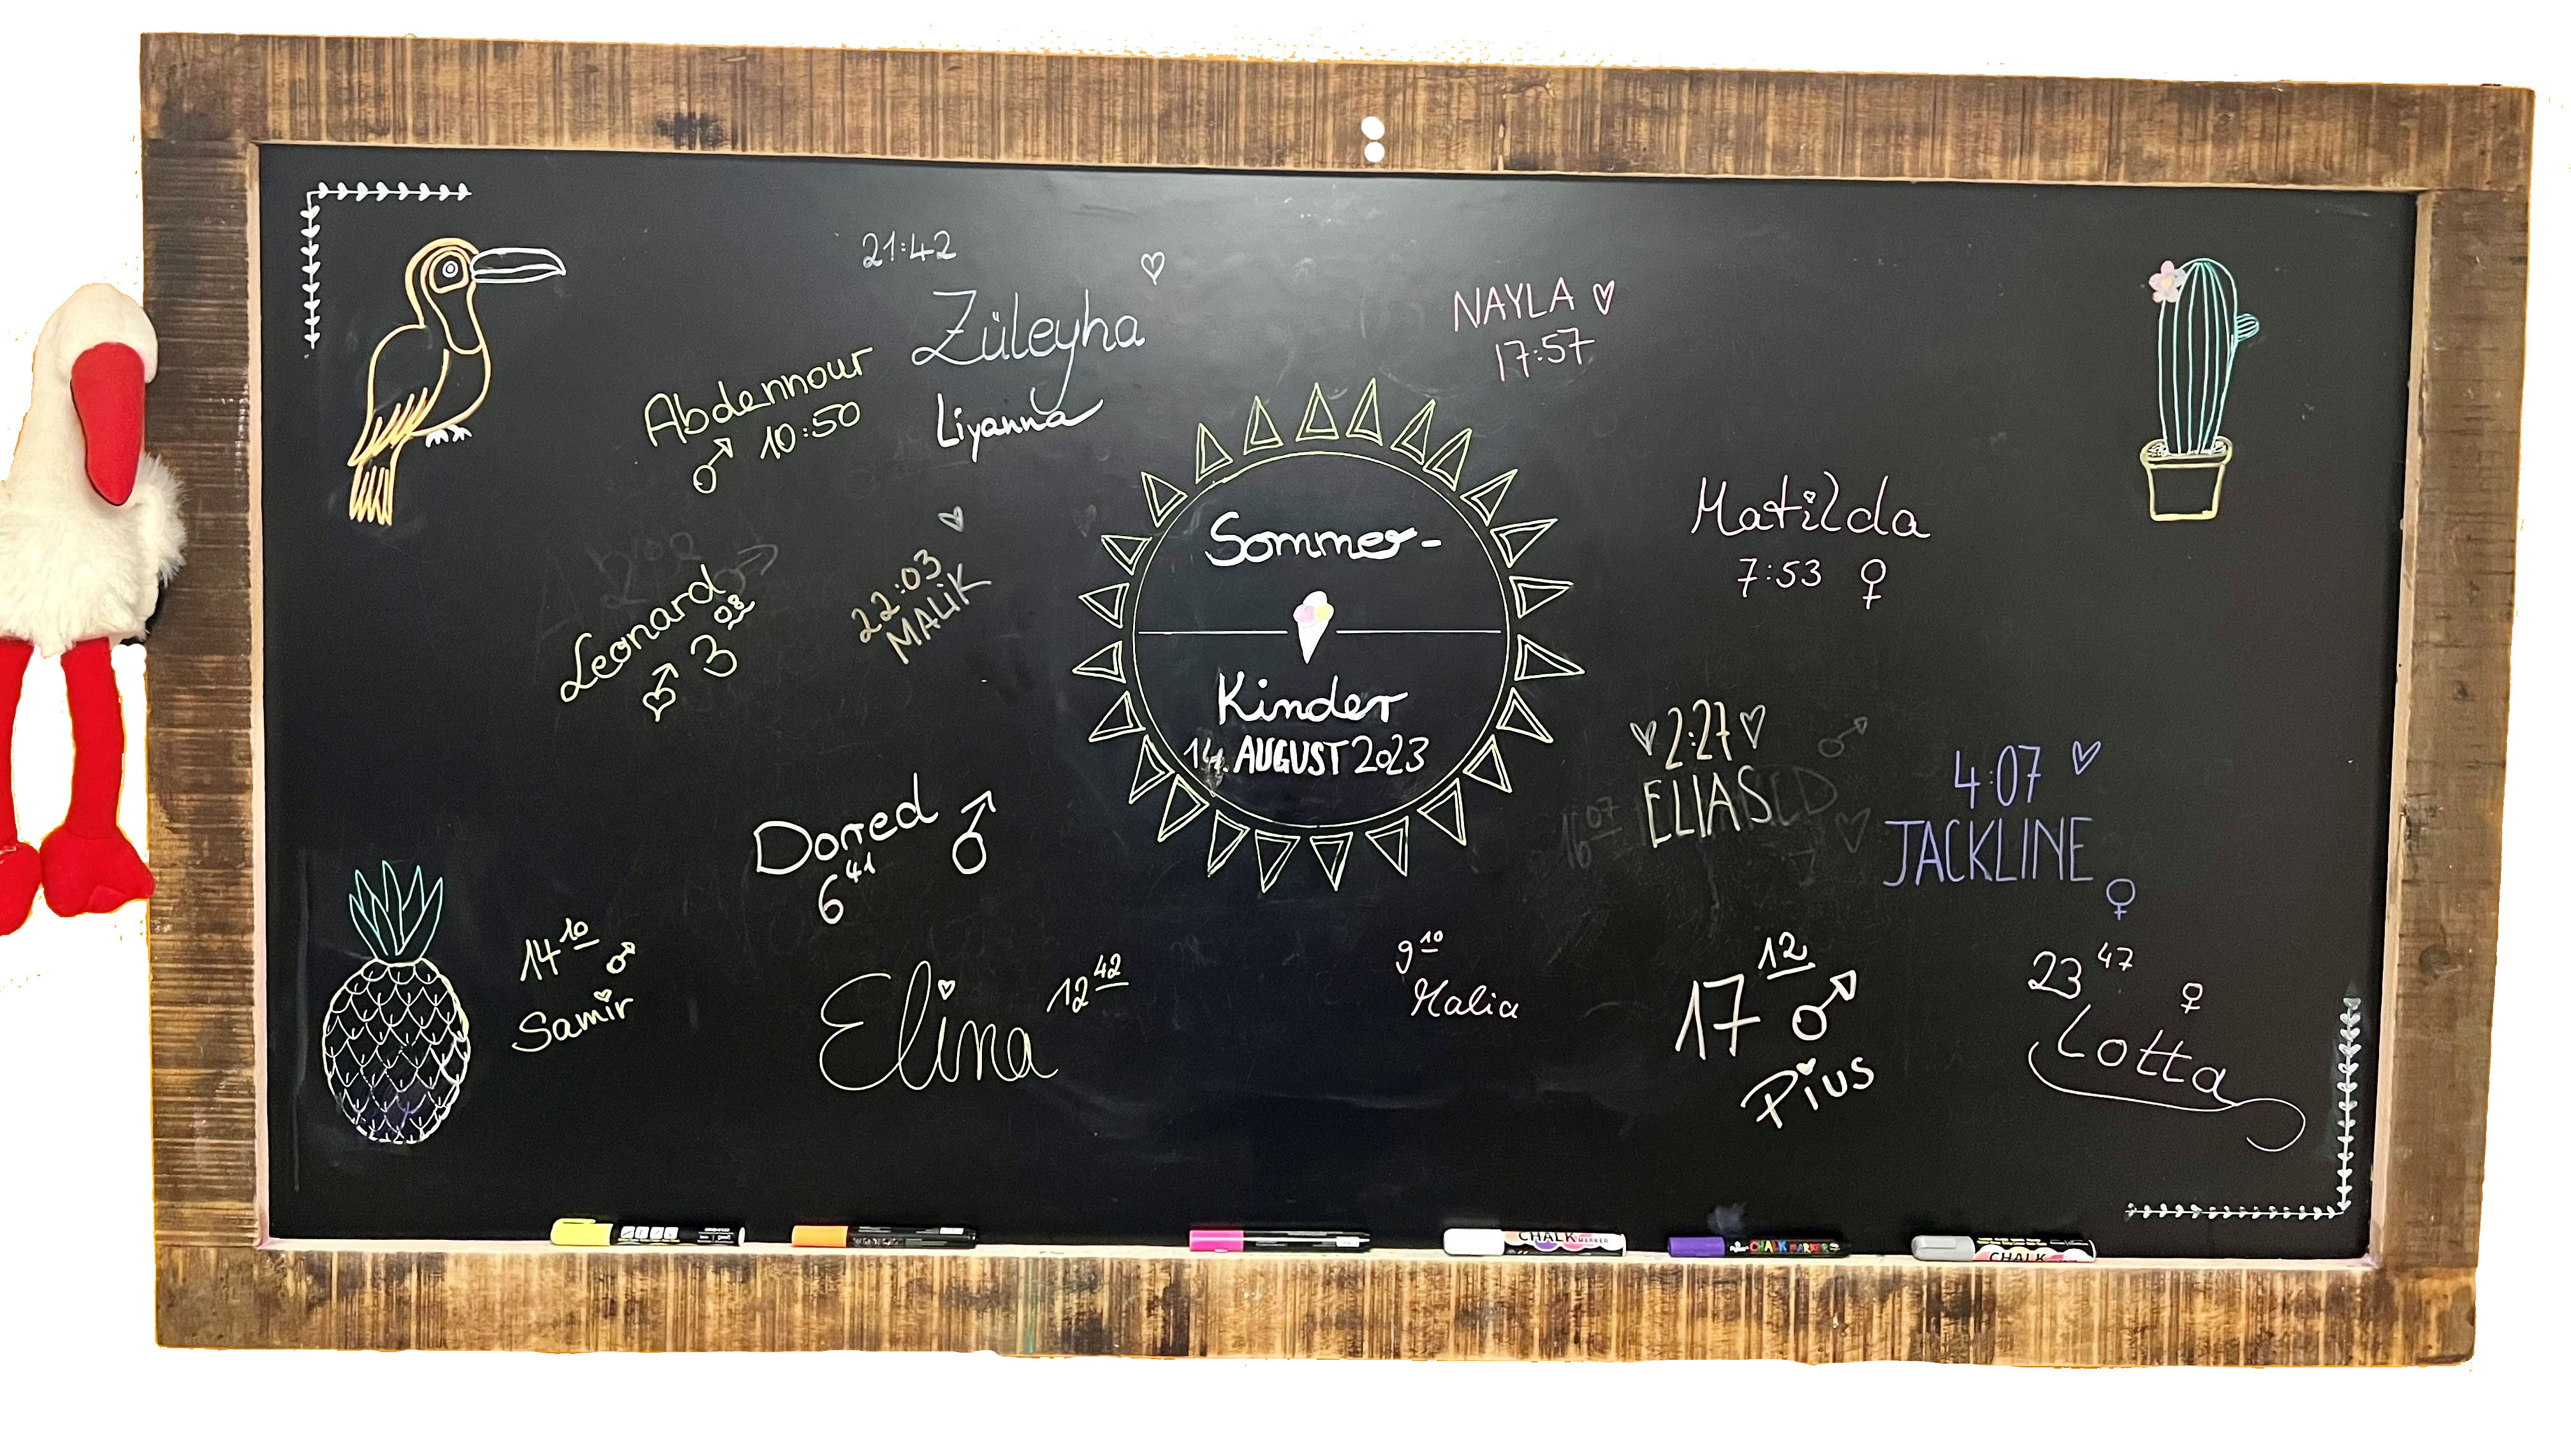 21:42
Züleyha
Liyanna
NAYLA
17:57
Abdennour
♂ 10:50
Matilda
7:53 ♀
Sommer-
Kinder
14. AUGUST 2023
22:03
MALiK
Leonard
♂ 3 08
2:27
ELIAS
4:07
JACKLINE
♀
Dorred ♂
6 41
14 10 ♂
Samir
Elina 12 42
9 10
Malia
17 12 ♂
Pius
23 47 ♀
Lotta
CHALK MARKER
CHALK MARKER
CHALK